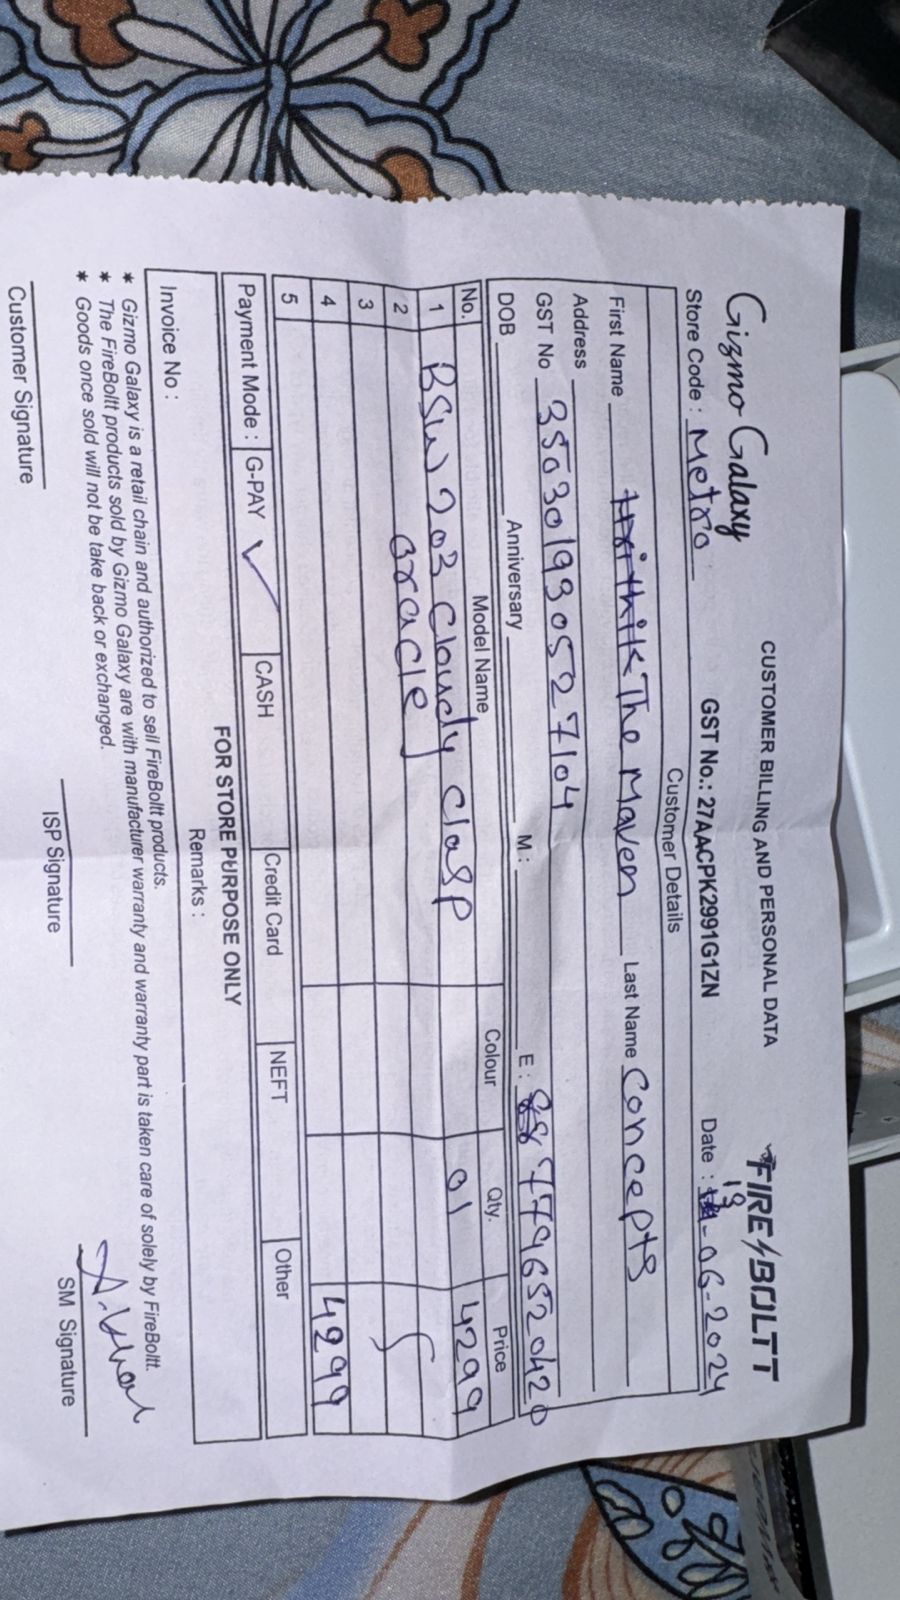 CUSTOMER BILLING AND PERSONAL DATA
Gizmo Galaxy FIRE BOLTT
Store Code : Metro GST No.: 27AACPK2991G1ZN Date : 13-06-2024
Customer Details
First Name Hrithik The Maven Last Name Concepts
Address
GST No 350301930527104 E : 7796520420
DOB Anniversary M :
No. Model Name Colour Qty. Price
1 BSW 203 Cloudy Clasp 01 4299
2 Oracle
3
4 4299
5
Payment Mode : G-PAY ✓ CASH Credit Card NEFT Other
FOR STORE PURPOSE ONLY
Invoice No : Remarks :
* Gizmo Galaxy is a retail chain and authorized to sell FireBoltt products.
* The FireBoltt products sold by Gizmo Galaxy are with manufacturer warranty and warranty part is taken care of solely by FireBoltt.
* Goods once sold will not be take back or exchanged.
Customer Signature ISP Signature SM Signature